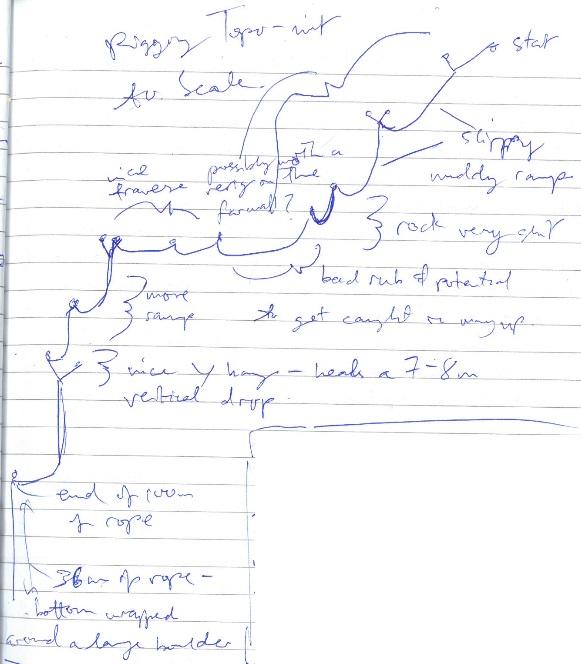 Rigging Topo - not
to Scale.
start
slippy
muddy ramp
nice
traverse
possibly worth a
rerig on the
farwall?
rock very
bad rub & potential
to get caught on way up.
more
nice Y hang - heads a 7-8m
vertical drop
end of 100m
of rope
36m of rope -
bottom wrapped
around a large boulder